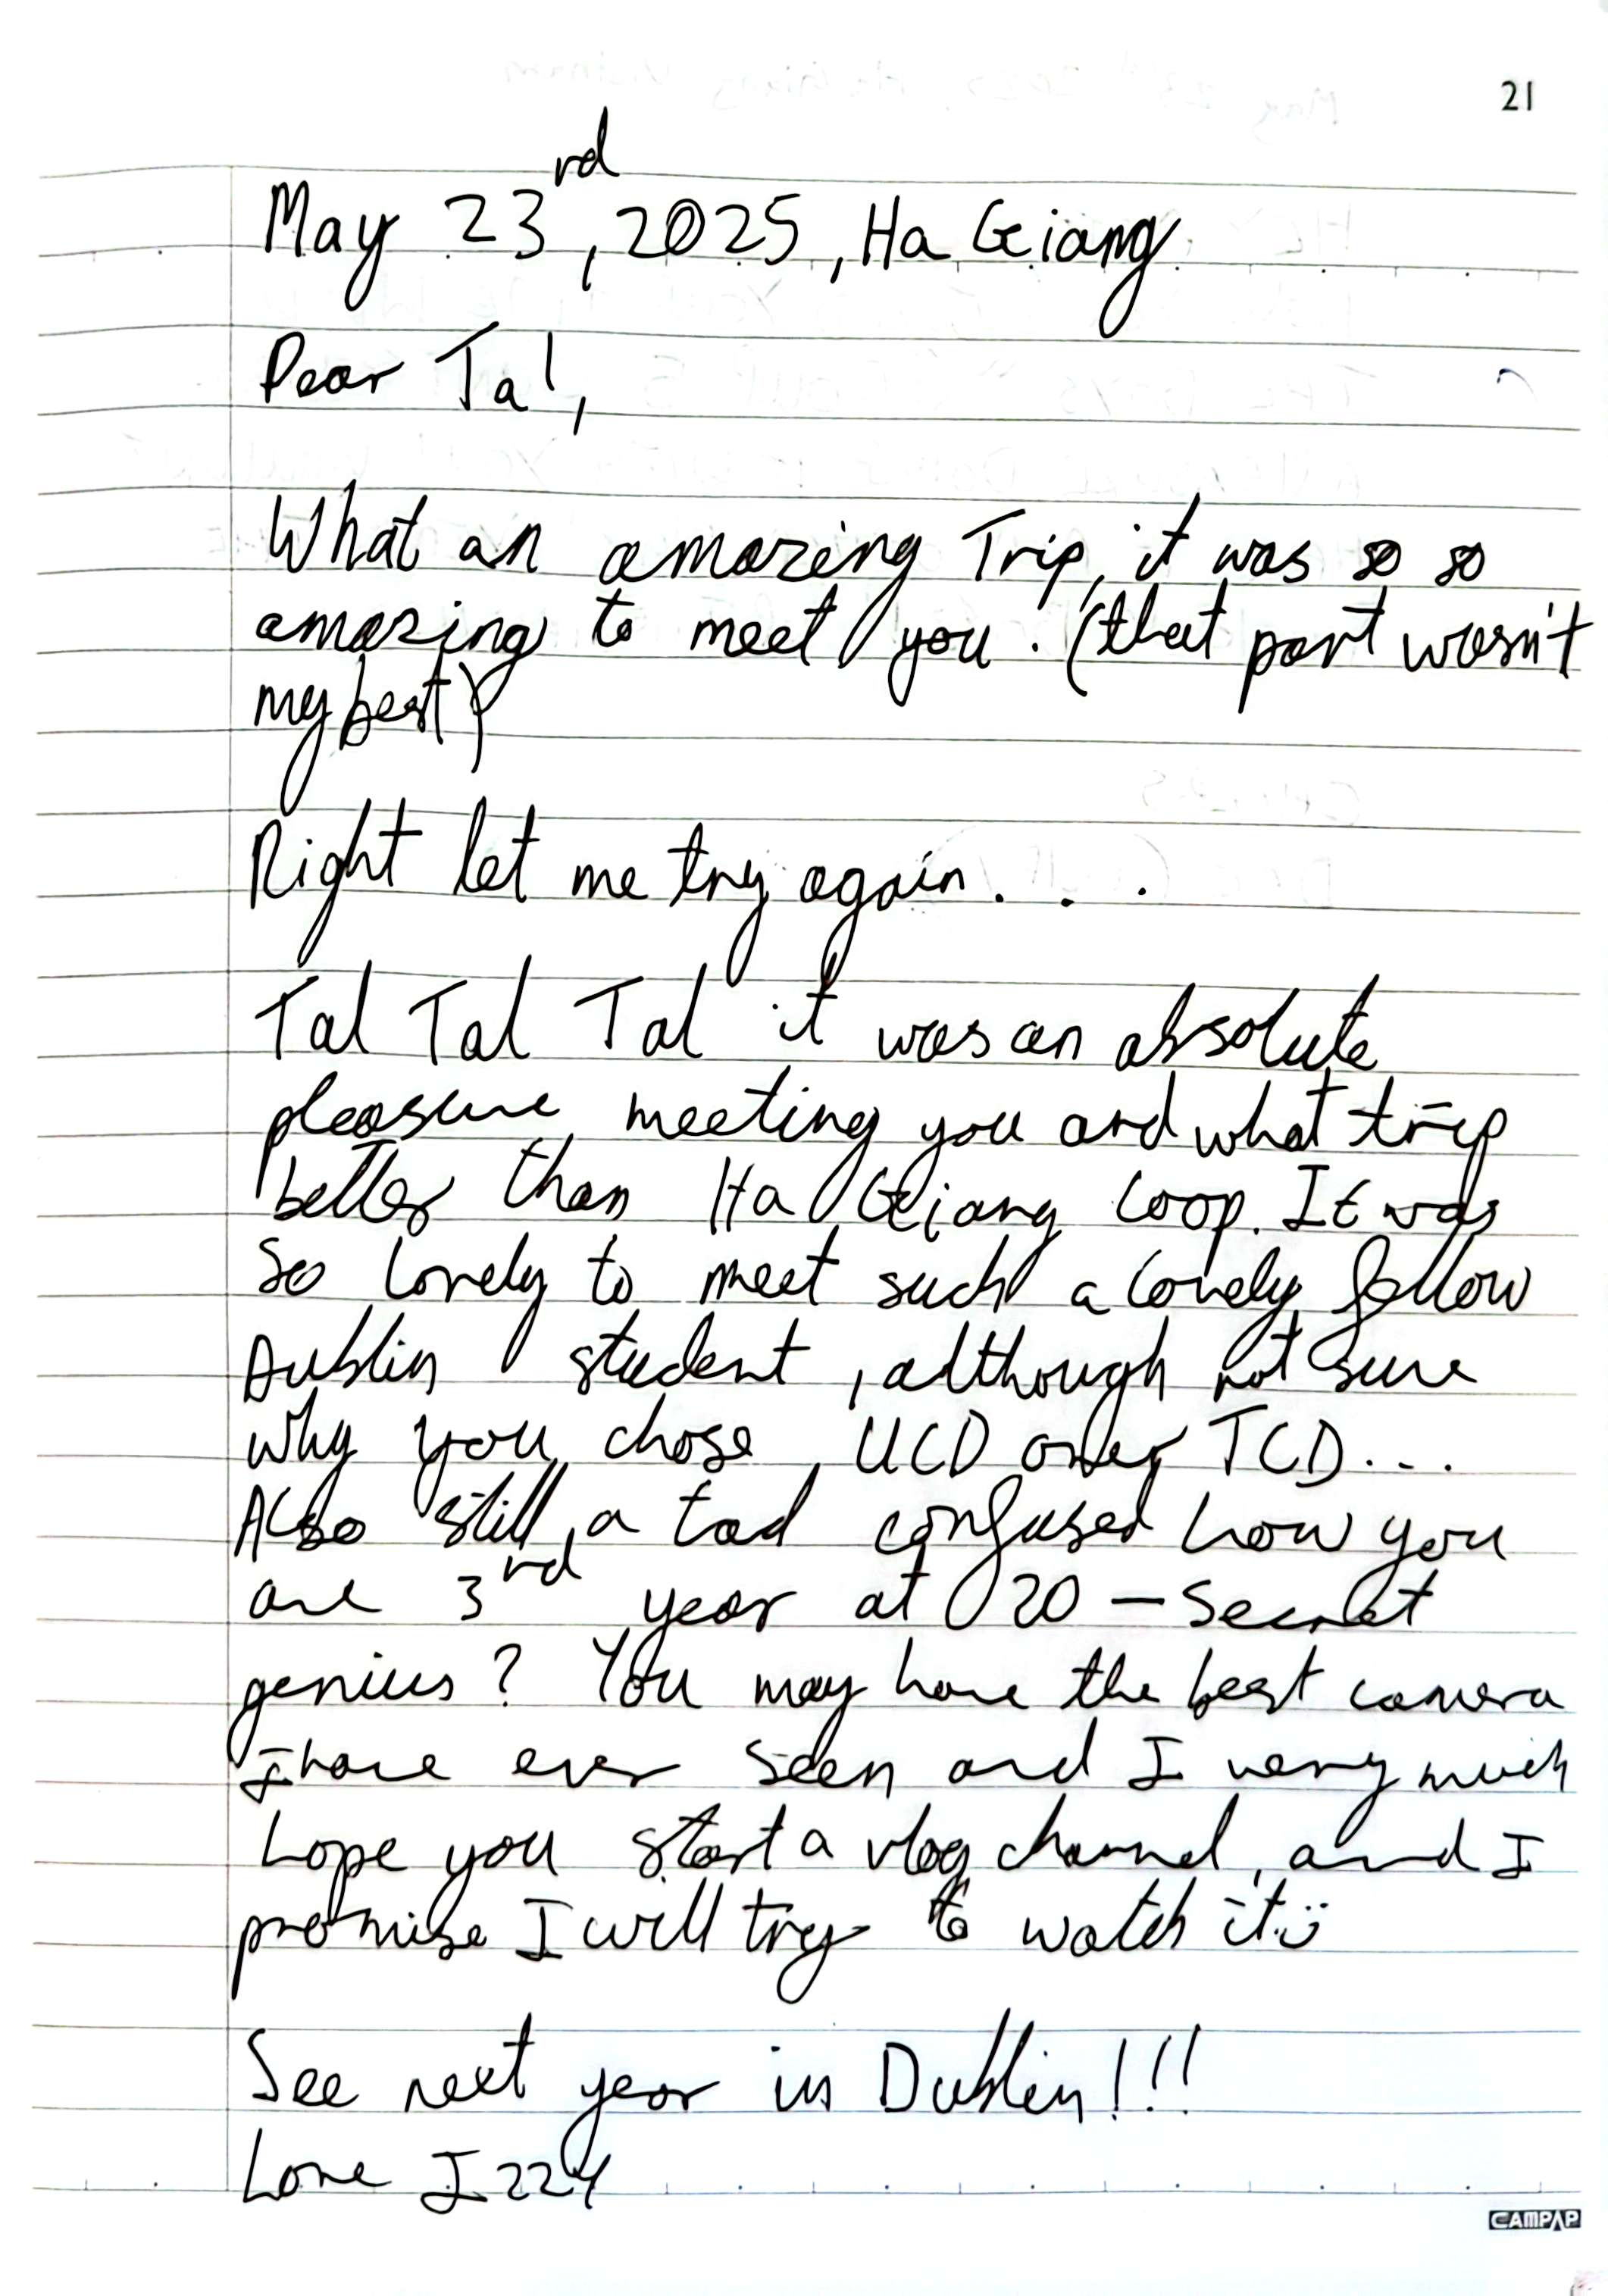 21
May 23rd, 2025, Ha Giang
Dear Tal,
What an amazing Trip, it was so so
amazing to meet you. (that part wasn't
my best)
Right let me try again...
Tal Tal Tal it was an absolute
pleasure meeting you and what trip
better than Ha Giang loop. It was
so lovely to meet such a lovely fellow
Dublin student, although not sure
why you chose UCD over TCD...
Also still a tad confused how you
are 3rd year at 20 - Secret
genius? You may have the best camera
I have ever seen and I very much
hope you start a vlog channel, and I
promise I will try to watch it :)
See next year in Dublin!!!
Love Izzy
CAMPAP